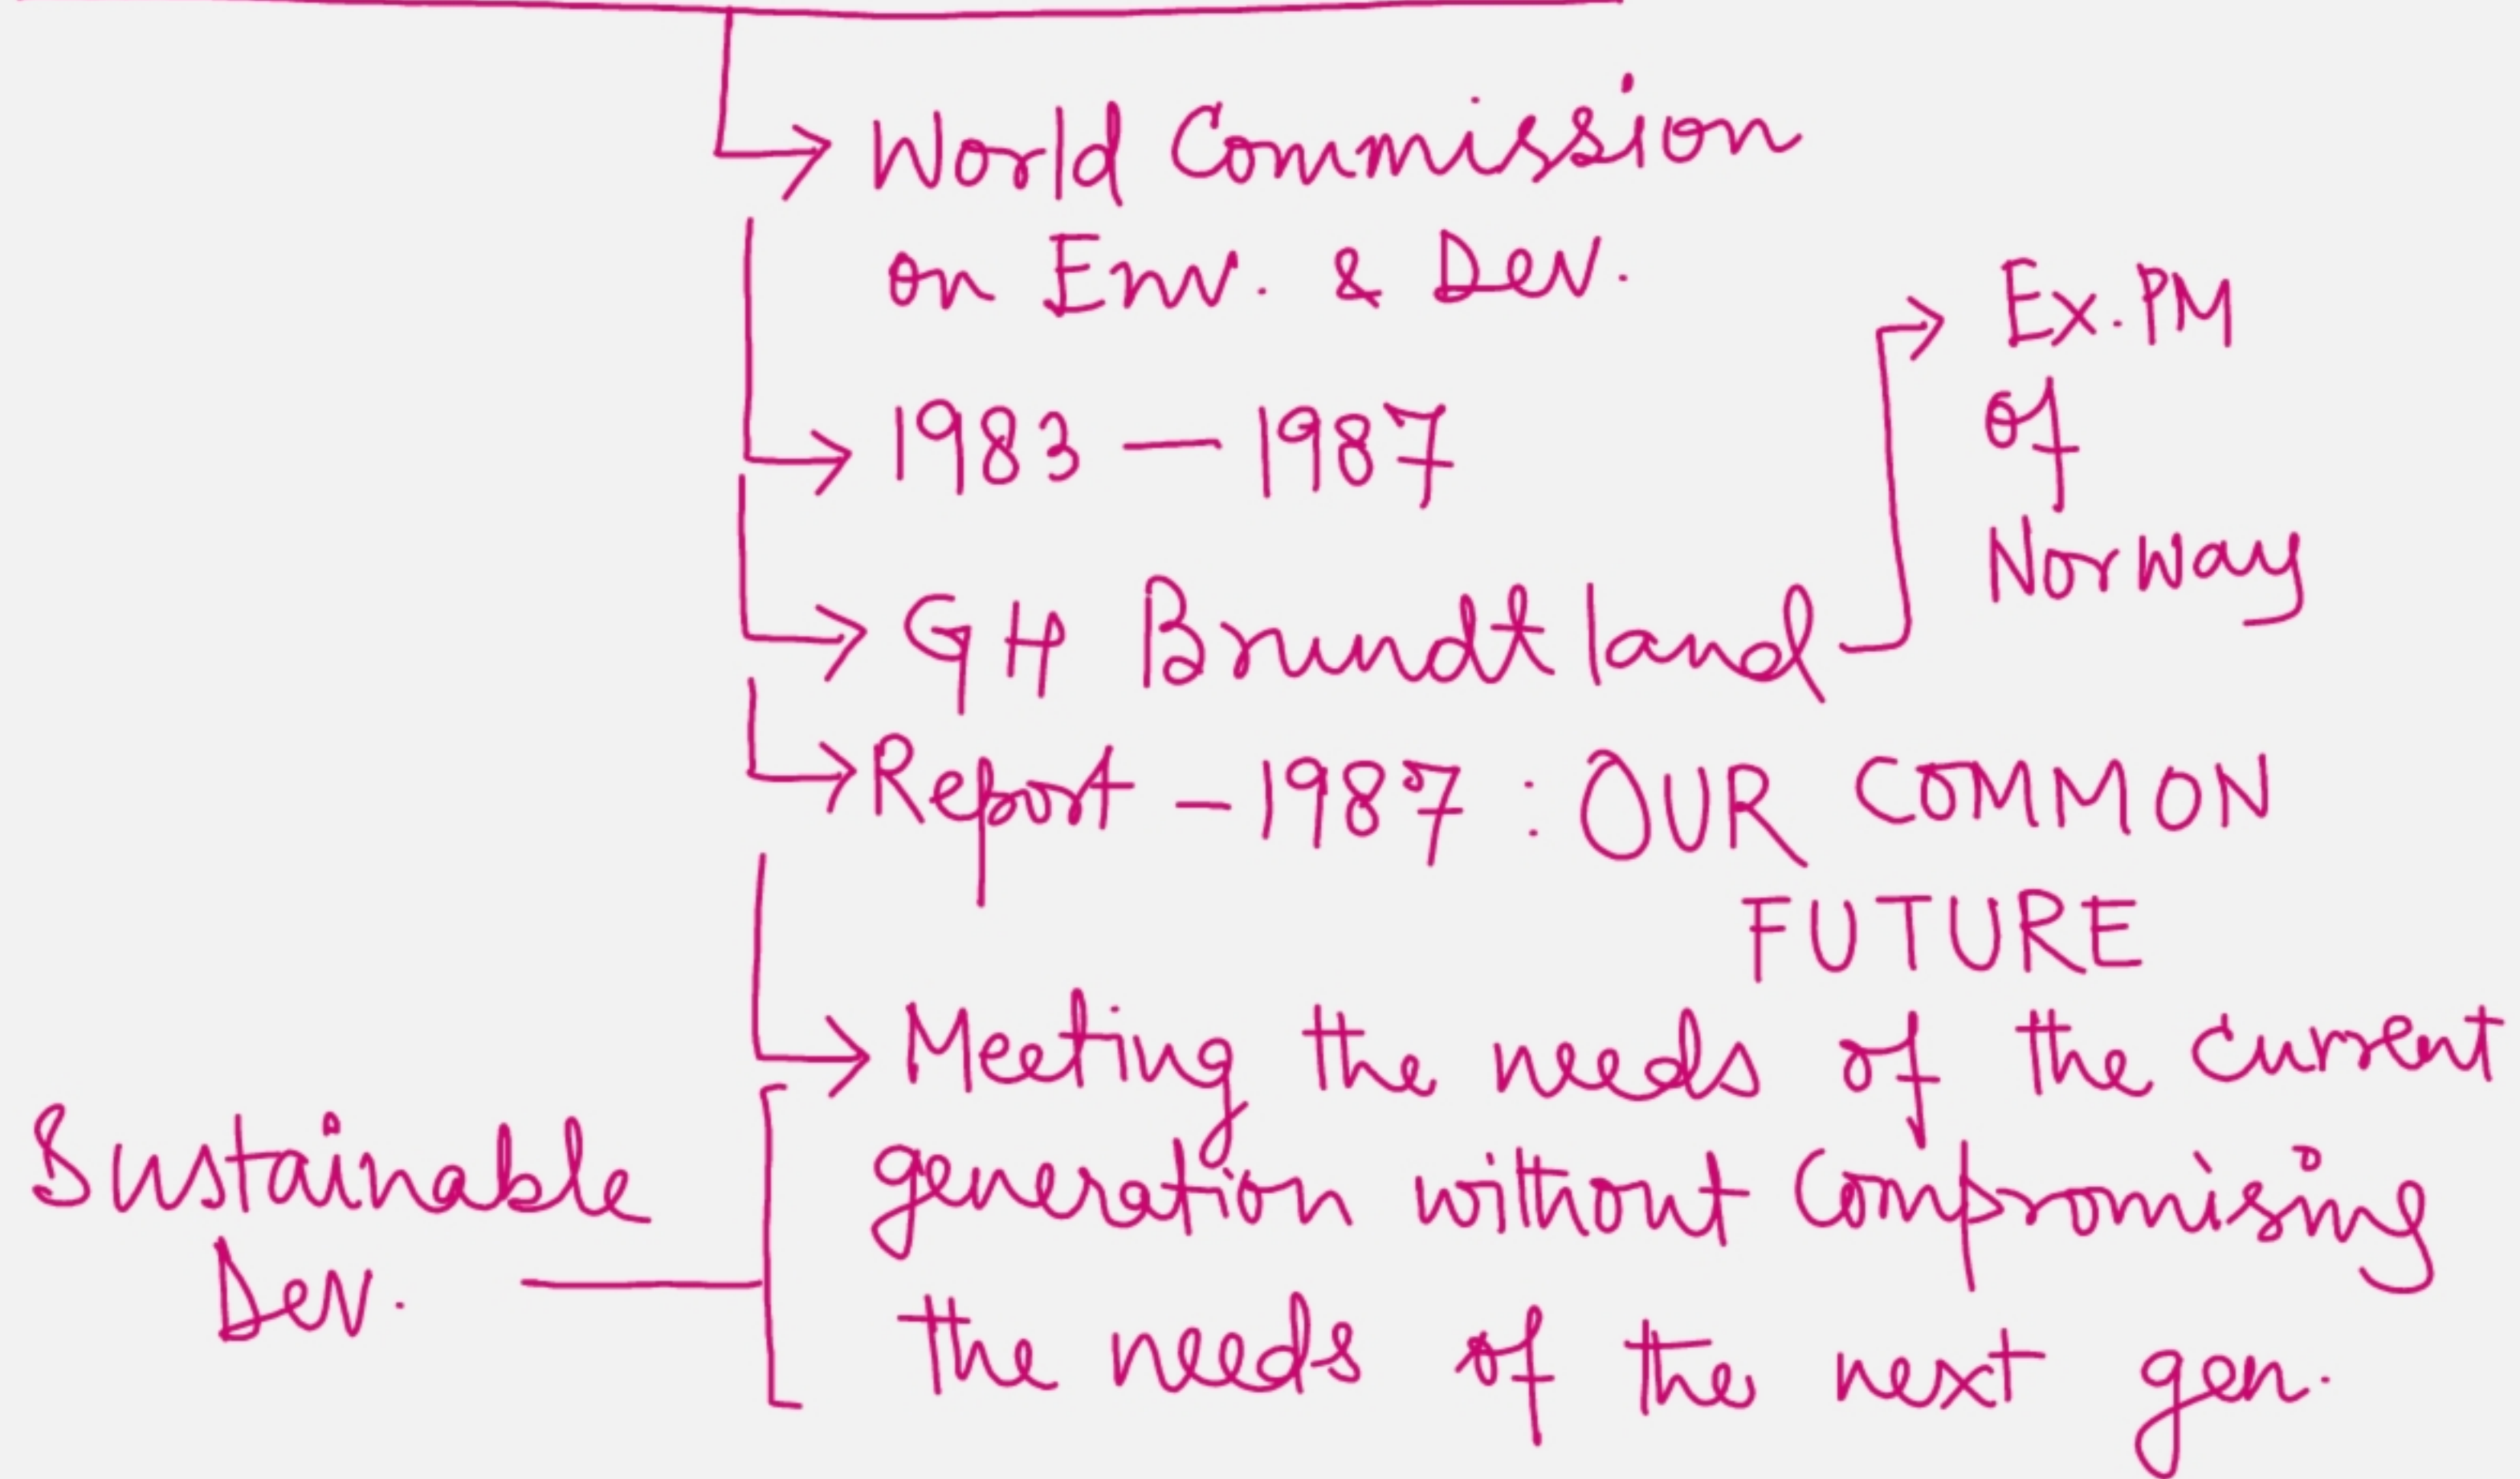 World Commission
on Env. & Dev.
1983 — 1987
Ex. PM
of
Norway
GH Brundtland
Report - 1987 : OUR COMMON
FUTURE
Meeting the needs of the current
generation without compromising
the needs of the next gen.
Sustainable
Dev.